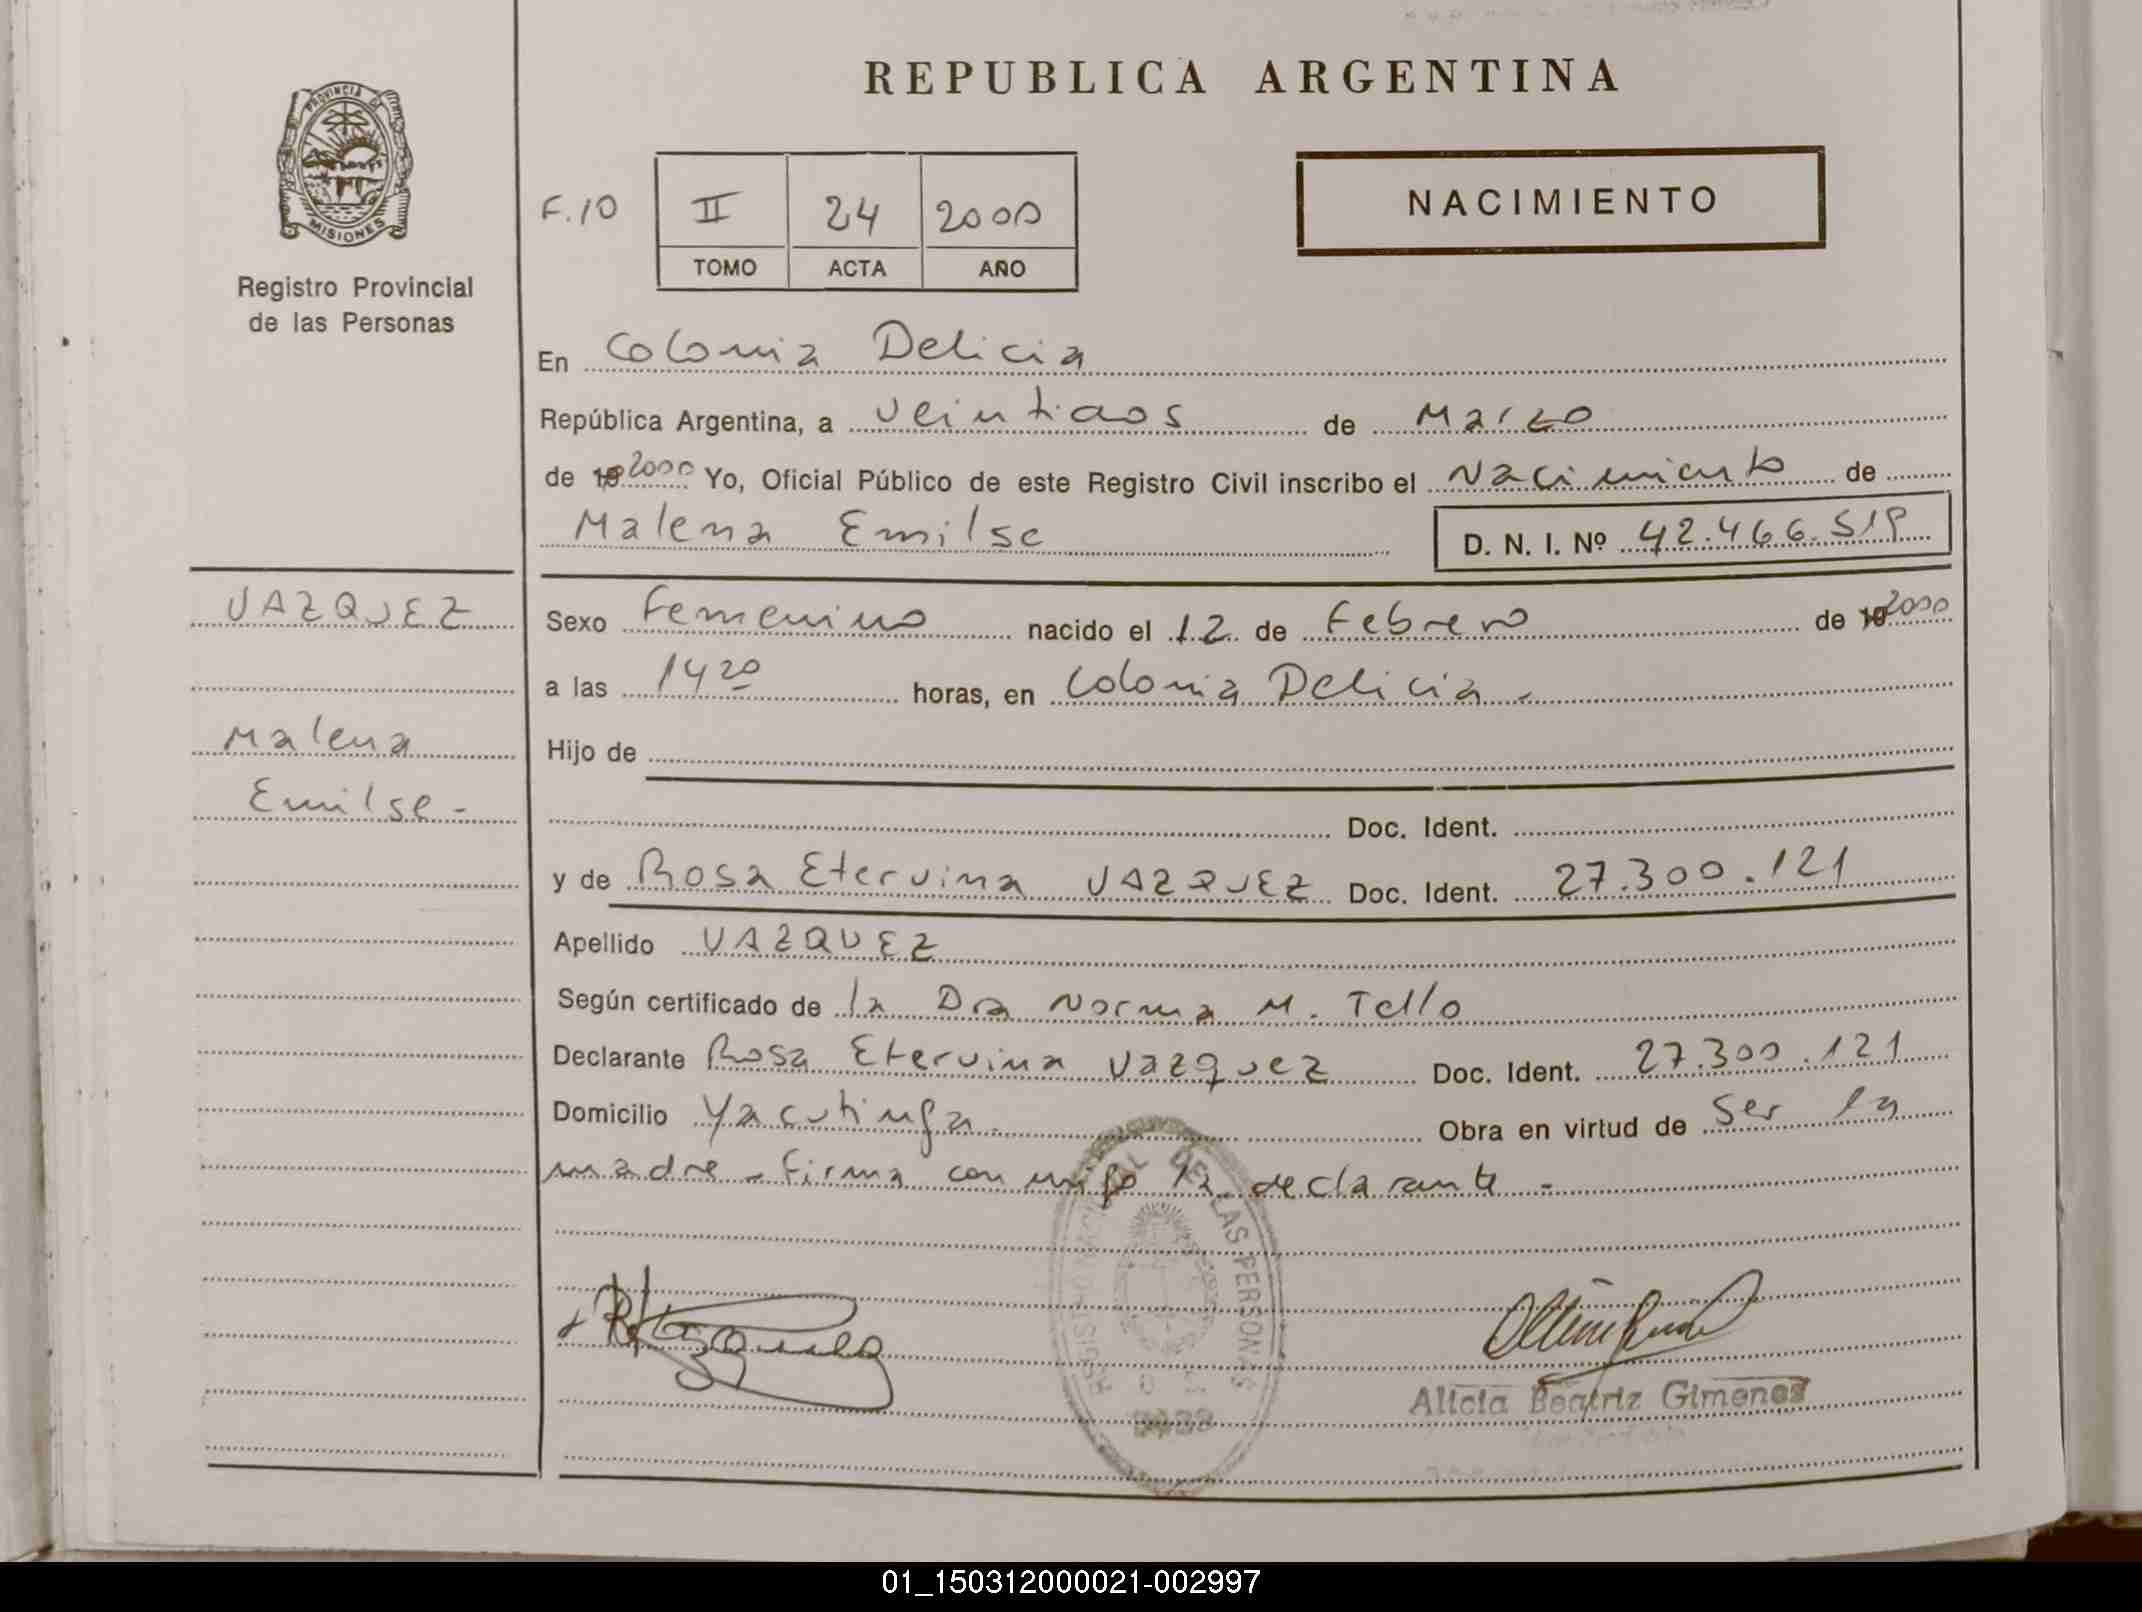 REPUBLICA ARGENTINA
PROVINCIA DE
MISIONES
Registro Provincial
de las Personas
F.10
II 24 2000
TOMO ACTA AÑO
NACIMIENTO
En Colonia Delicia
República Argentina, a veintidos de Marzo
de 19 2000 Yo, Oficial Público de este Registro Civil inscribo el Nacimiento de
Malena Emilse D. N. I. Nº 42.466.519
VAZQUEZ
Malena
Emilse -
Sexo Femenino nacido el 12 de Febrero de 19 2000
a las 14 20 horas, en Colonia Delicia -
Hijo de
Doc. Ident.
y de Rosa Etervina VAZQUEZ Doc. Ident. 27.300.121
Apellido VAZQUEZ
Según certificado de la Dra Norma M. Tello
Declarante Rosa Etervina Vazquez Doc. Ident. 27.300.121
Domicilio Yacutinga - Obra en virtud de ser la
madre - Firma conmigo la declarante -
DE LAS PERSONAS
Alicia Beatriz Gimenez
01_150312000021-002997